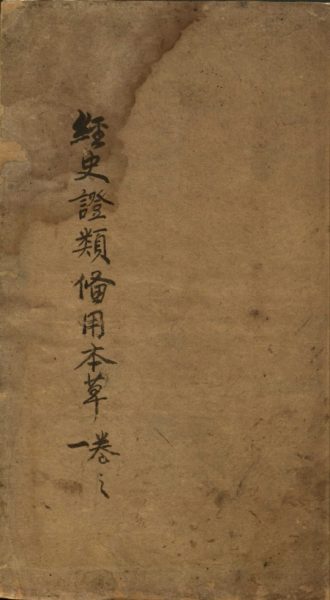 經史證類備用本草卷之一